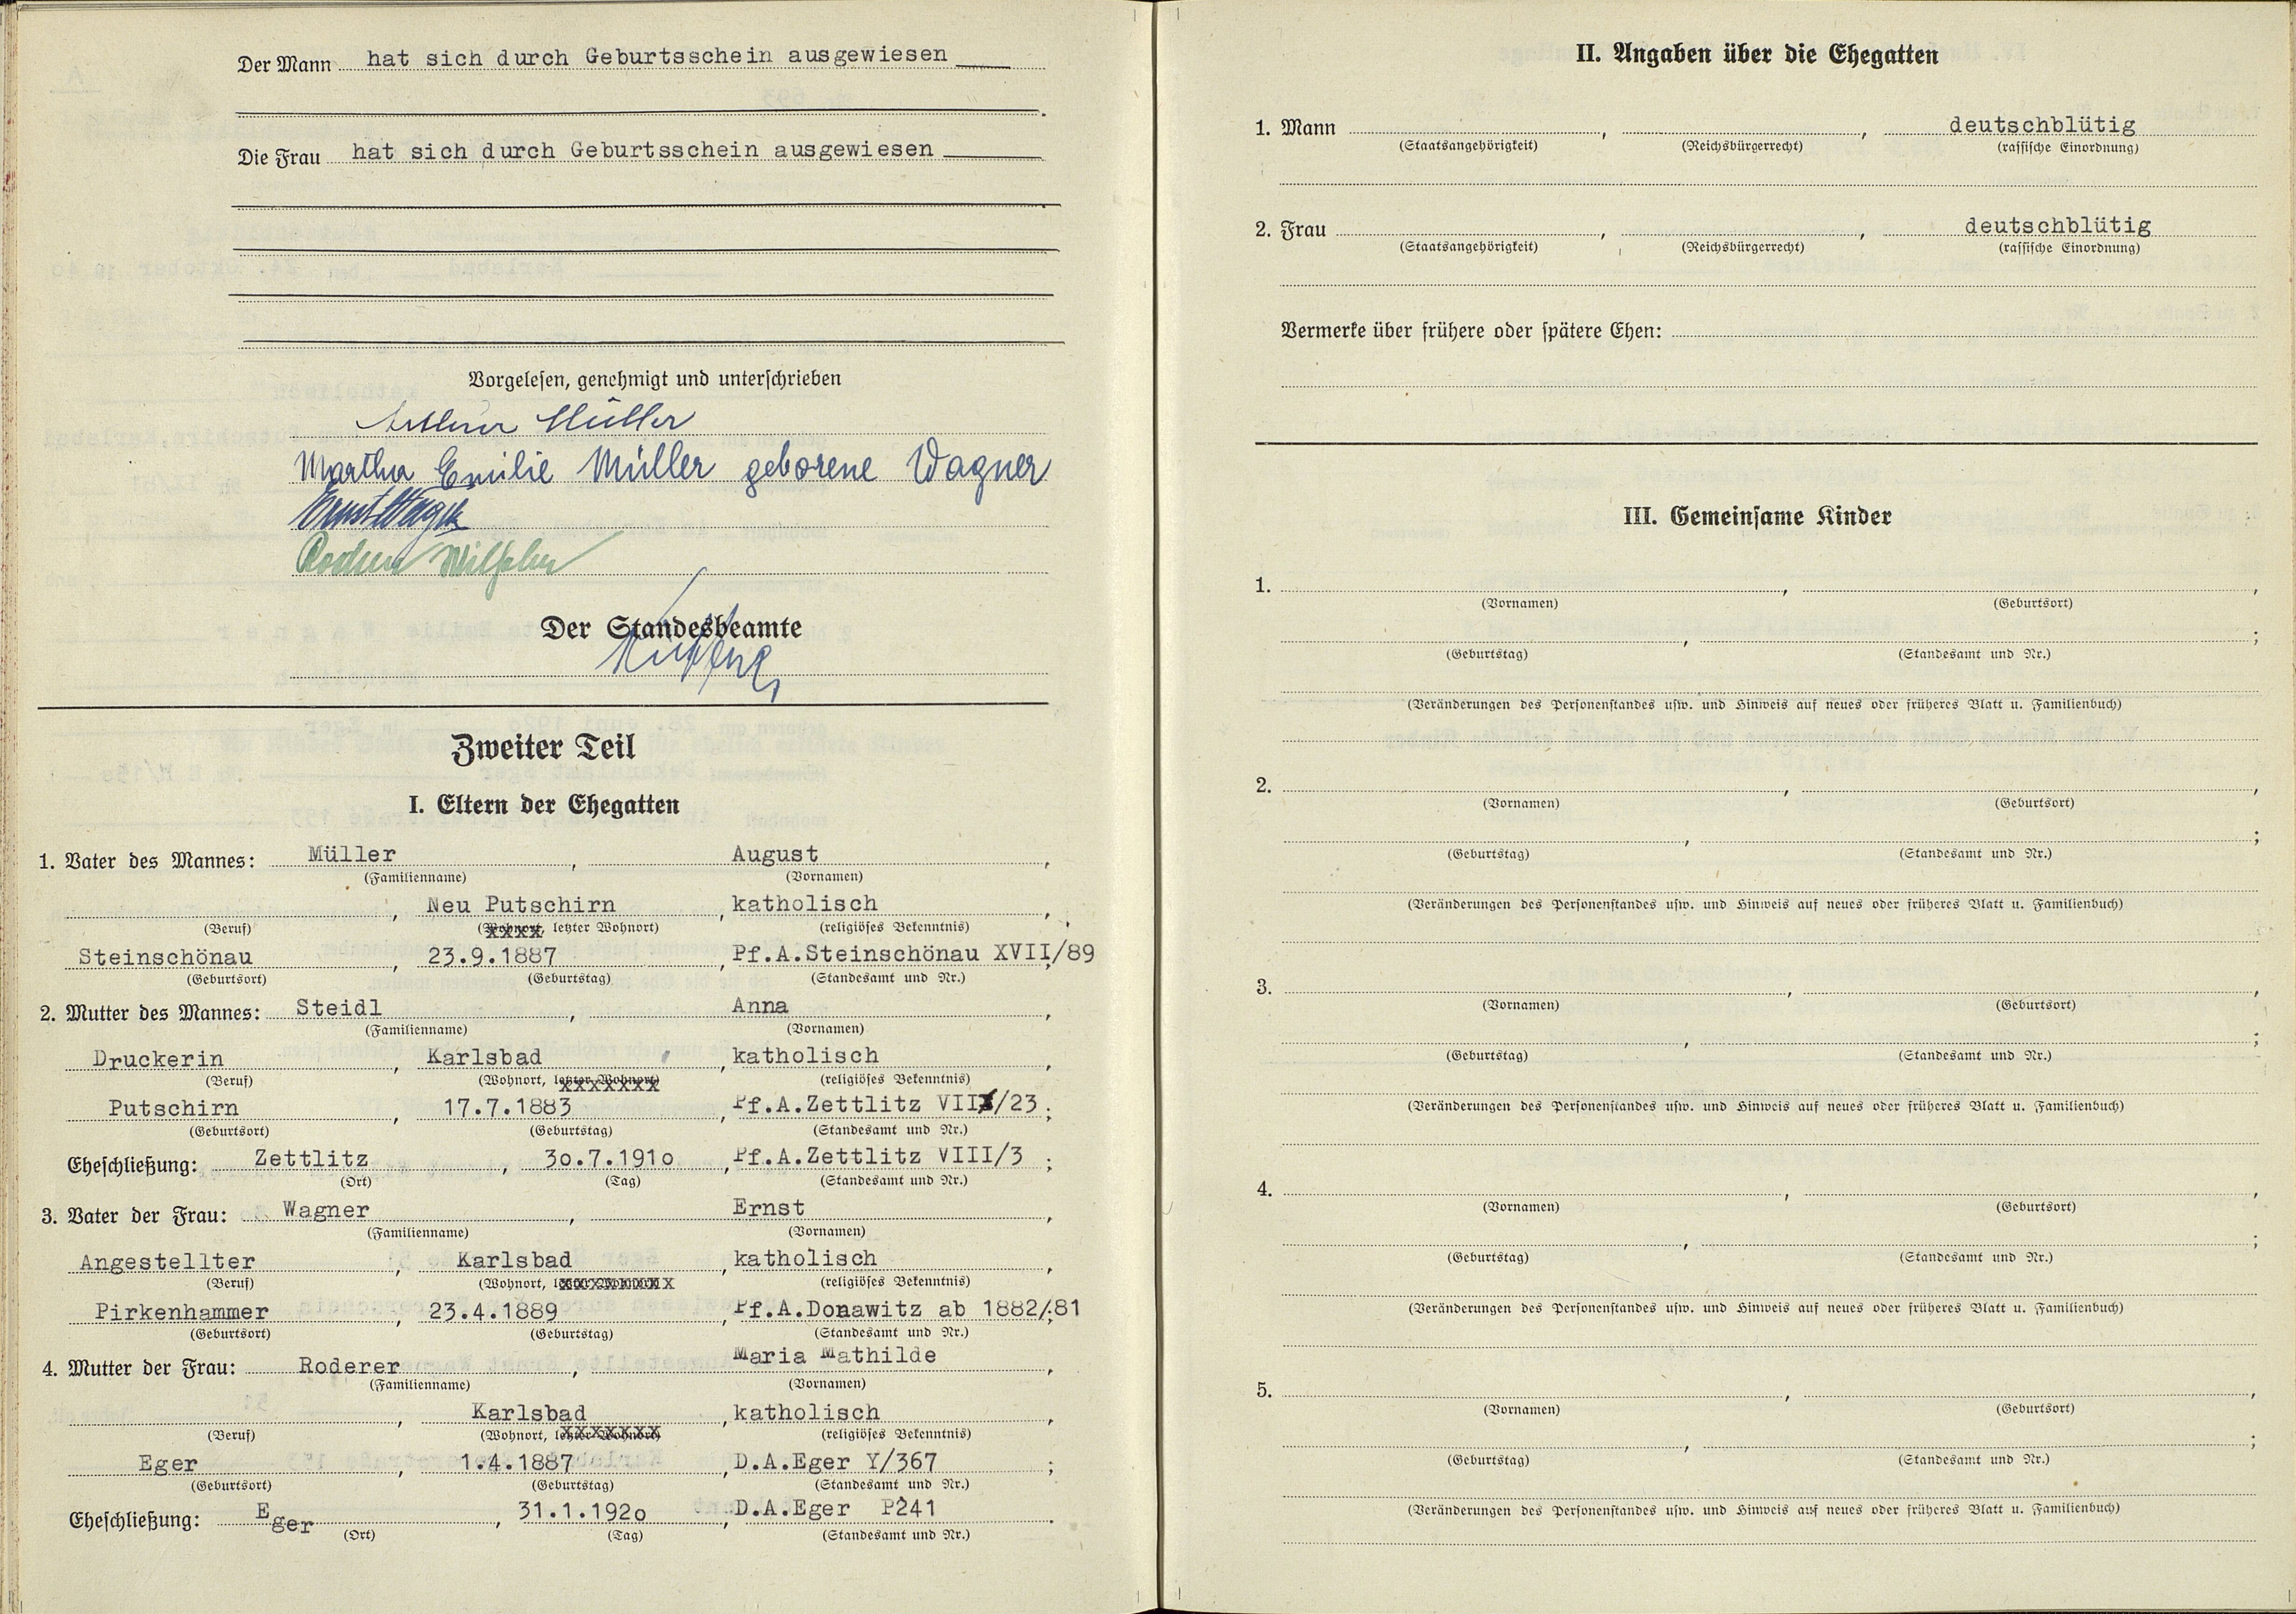 Der Mann hat sich durch Geburtsschein ausgewiesen
Die Frau hat sich durch Geburtsschein ausgewiesen
Vorgelesen, genehmigt und unterschrieben
Arthur Müller
Martha Emilie Müller geborene Wagner
Ernst Wagner
Wilhelm
Der Standesbeamte
Zweiter Teil
I. Eltern der Ehegatten
1. Vater des Mannes: Müller, August,
(Familienname) (Vornamen)
, Neu Putschirn, katholisch,
(Beruf) (Wohnort, letzter Wohnort) (religiöses Bekenntnis)
Steinschönau, 23.9.1887, Pf.A.Steinschönau XVII/89;
(Geburtsort) (Geburtstag) (Standesamt und Nr.)
2. Mutter des Mannes: Steidl, Anna,
(Familienname) (Vornamen)
Druckerin, Karlsbad, katholisch,
(Beruf) (Wohnort, letzter Wohnort) (religiöses Bekenntnis)
Putschirn, 17.7.1883, Pf.A.Zettlitz VII/23;
(Geburtsort) (Geburtstag) (Standesamt und Nr.)
Eheschließung: Zettlitz, 3o.7.191o, Pf.A.Zettlitz VIII/3;
(Ort) (Tag) (Standesamt und Nr.)
3. Vater der Frau: Wagner, Ernst,
(Familienname) (Vornamen)
Angestellter, Karlsbad, katholisch,
(Beruf) (Wohnort, letzter Wohnort) (religiöses Bekenntnis)
Pirkenhammer, 23.4.1889, Pf.A.Donawitz ab 1882/81;
(Geburtsort) (Geburtstag) (Standesamt und Nr.)
4. Mutter der Frau: Roderer, Maria Mathilde,
(Familienname) (Vornamen)
, Karlsbad, katholisch,
(Beruf) (Wohnort, letzter Wohnort) (religiöses Bekenntnis)
Eger, 1.4.1887, D.A.Eger Y/367;
(Geburtsort) (Geburtstag) (Standesamt und Nr.)
Eheschließung: Eger, 31.1.192o, D.A.Eger P241.
(Ort) (Tag) (Standesamt und Nr.)
II. Angaben über die Ehegatten
1. Mann , , deutschblütig
(Staatsangehörigkeit) (Reichsbürgerrecht) (rassische Einordnung)
2. Frau , , deutschblütig
(Staatsangehörigkeit) (Reichsbürgerrecht) (rassische Einordnung)
Vermerke über frühere oder spätere Ehen:
III. Gemeinsame Kinder
1. , ,
(Vornamen) (Geburtsort)
, ;
(Geburtstag) (Standesamt und Nr.)
(Veränderungen des Personenstandes usw. und Hinweis auf neues oder früheres Blatt u. Familienbuch)
2. , ,
(Vornamen) (Geburtsort)
, ;
(Geburtstag) (Standesamt und Nr.)
(Veränderungen des Personenstandes usw. und Hinweis auf neues oder früheres Blatt u. Familienbuch)
3. , ,
(Vornamen) (Geburtsort)
, ;
(Geburtstag) (Standesamt und Nr.)
(Veränderungen des Personenstandes usw. und Hinweis auf neues oder früheres Blatt u. Familienbuch)
4. , ,
(Vornamen) (Geburtsort)
, ;
(Geburtstag) (Standesamt und Nr.)
(Veränderungen des Personenstandes usw. und Hinweis auf neues oder früheres Blatt u. Familienbuch)
5. , ,
(Vornamen) (Geburtsort)
, ;
(Geburtstag) (Standesamt und Nr.)
(Veränderungen des Personenstandes usw. und Hinweis auf neues oder früheres Blatt u. Familienbuch)